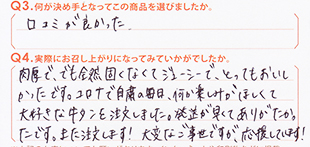 Q3.何が決め手となってこの商品を選びましたか。
口コミが良かった。
Q4.実際にお召し上がりになってみていかがでしたか。
肉厚で、でも全然固くなくてジューシーで、とってもおいし
かったです。コロナで自粛の毎日、何か楽しみがほしくて
大好きな牛タンを注文しました。発送が早くてありがたかっ
たです。また注文します！大変なご時世ですが応援しています！